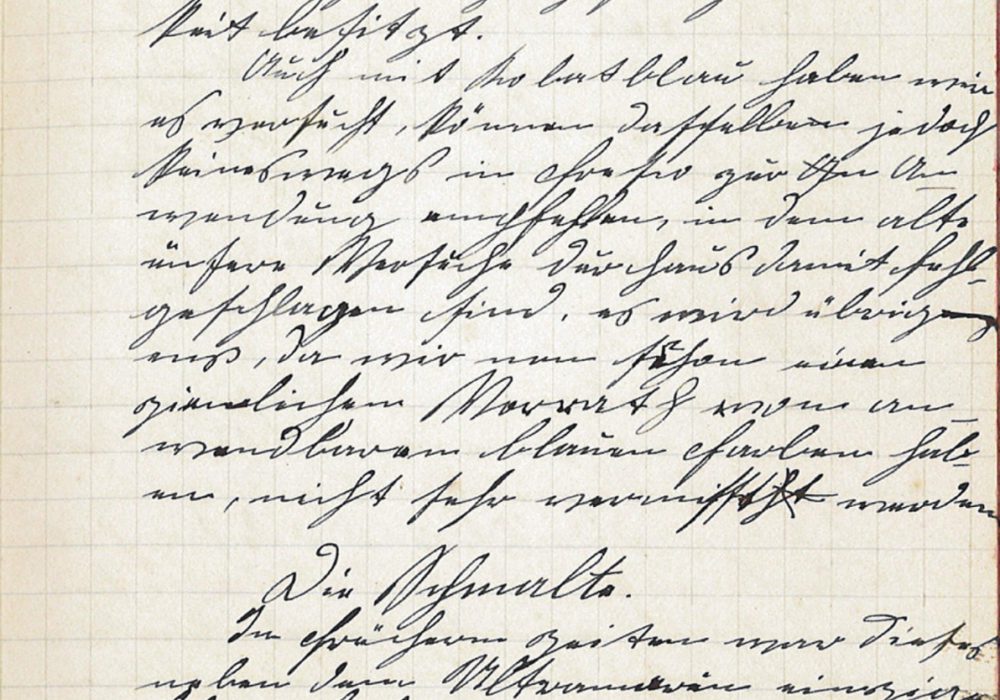 keit besitzt.
Auch mit Kobatblau haben wir
es versucht, können dasselben jedoch
keineswegs in fresko zur An An
wendung empfehlen, in dem alle
unsere Versuche durchaus damit fehl-
geschlagen sind, es wird übrig
ens, da wir nun schon einen
ziemlichem Vorrath vom an
wendbarem blauen farben hab-
en, nicht sehr vermisst werden
Die Schmalte.
In früchern zeiten war dieses
neben dem Ultramarin einzig